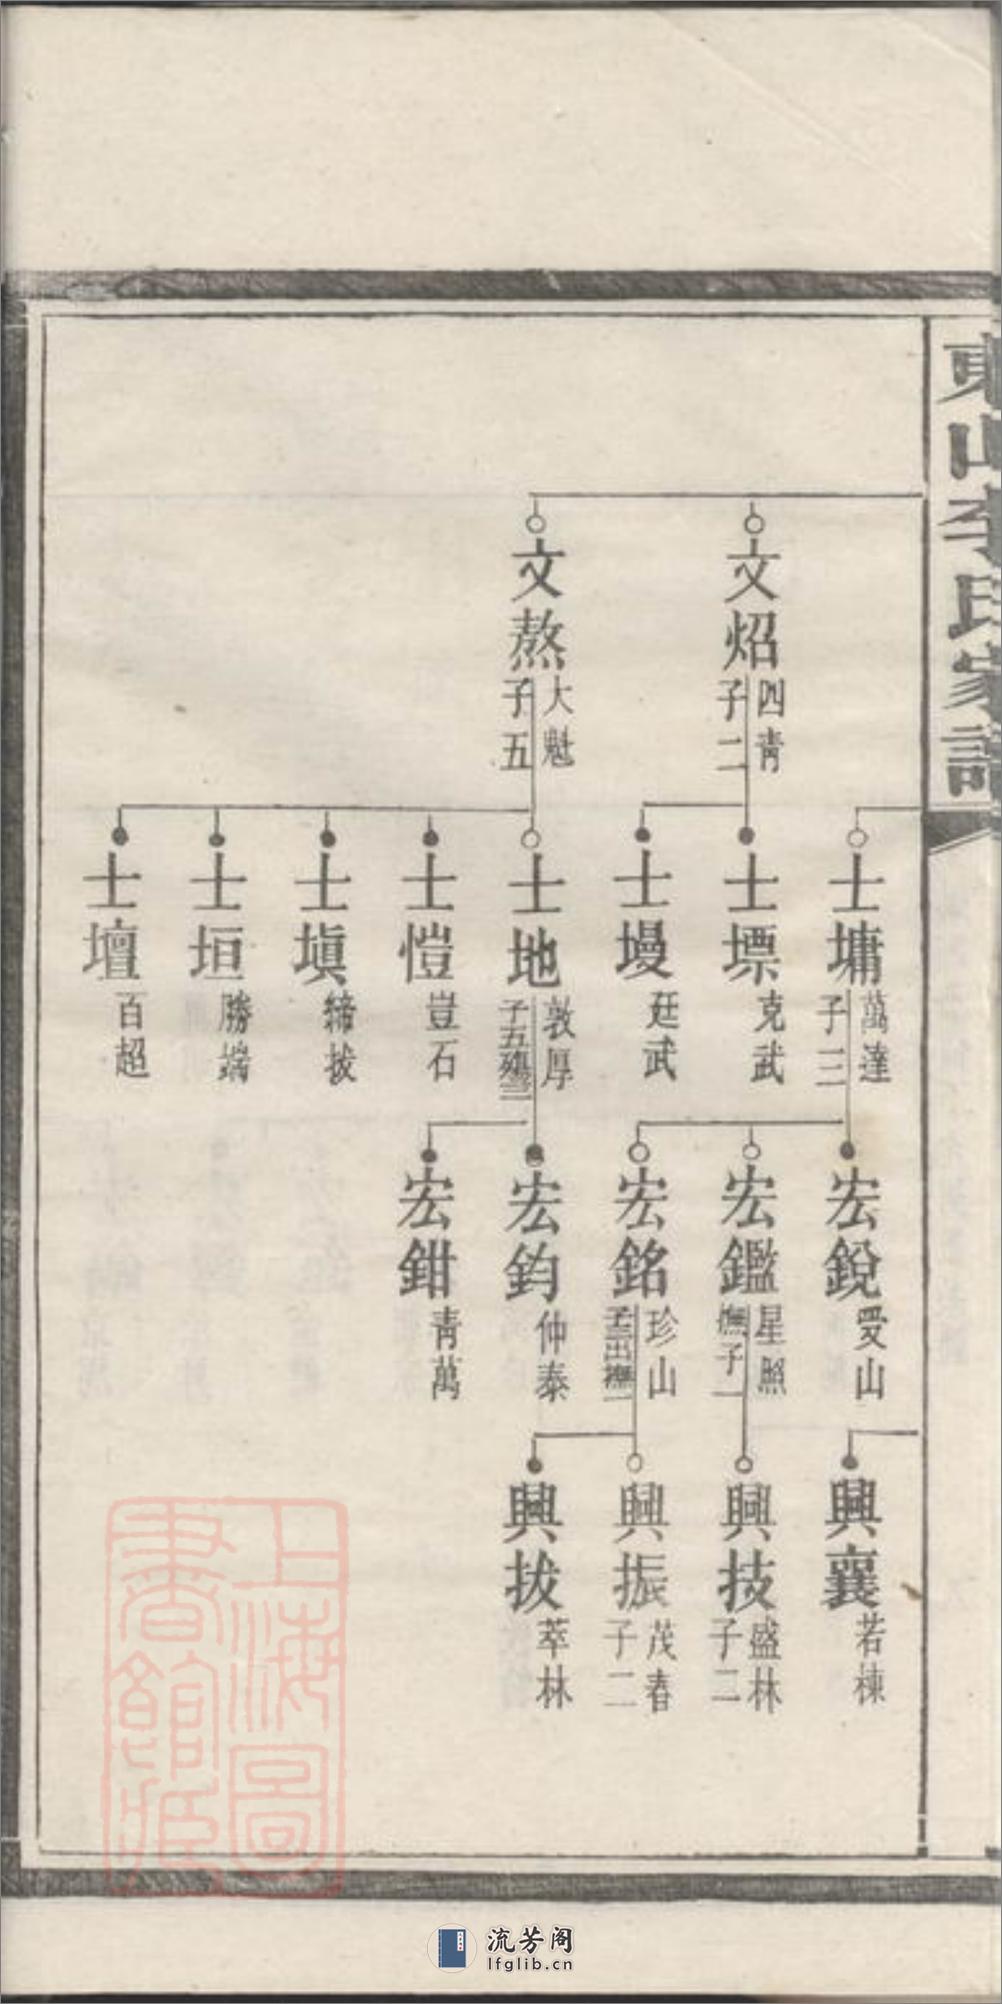 東山李氏家譜
文炤 四青 子二
文熬 大魁 子五
士墉 萬達 子三
士墂 克武
士墁 廷武
士地 敦厚 子五殤三
士愷 豈石
士塡 締拔
士垣 勝端
士壇 百超
宏銳 受山
宏鑑 星照 撫子一
宏銘 珍山 子三出撫一
宏鈞 仲泰
宏鉗 青萬
興襄 若棟
興技 盛林 子二
興振 茂春 子二
興拔 萃林
上海圖書館藏
流芳阁
lfglib.cn